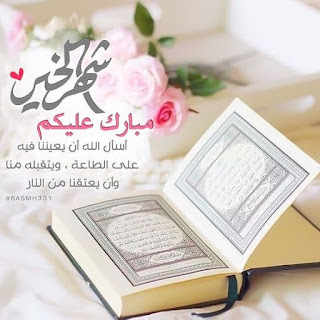 شهر الخير
مبارك عليكم
أسأل الله أن يعيننا فيه
على الطاعة ، ويتقبله منا
وأن يعتقنا من النار
#BASMH331